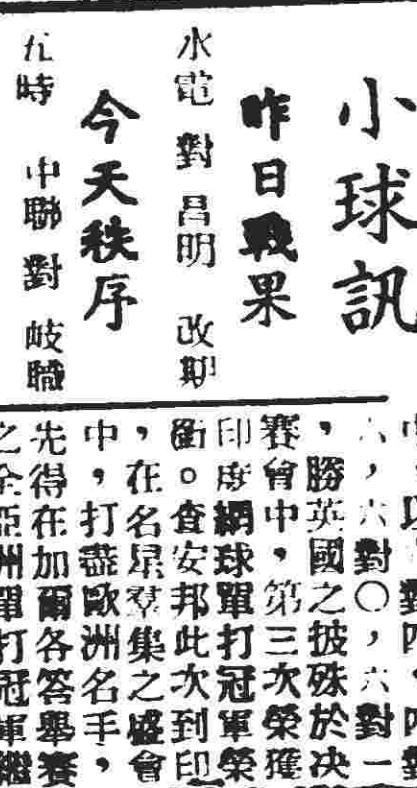 小球訊
昨日戰果
水電 對 昌明 改期
今天秩序
九時 中聯 對 岐職
六，六對〇，六對一
，勝英國之披殊於决
賽會中，第三次榮獲
印度網球單打冠軍榮
銜。查安邦此次到印
，在名星羣集之盛會
中，打盡歐洲名手，
先得在加爾各答舉賽
之全亞洲單打冠軍繼